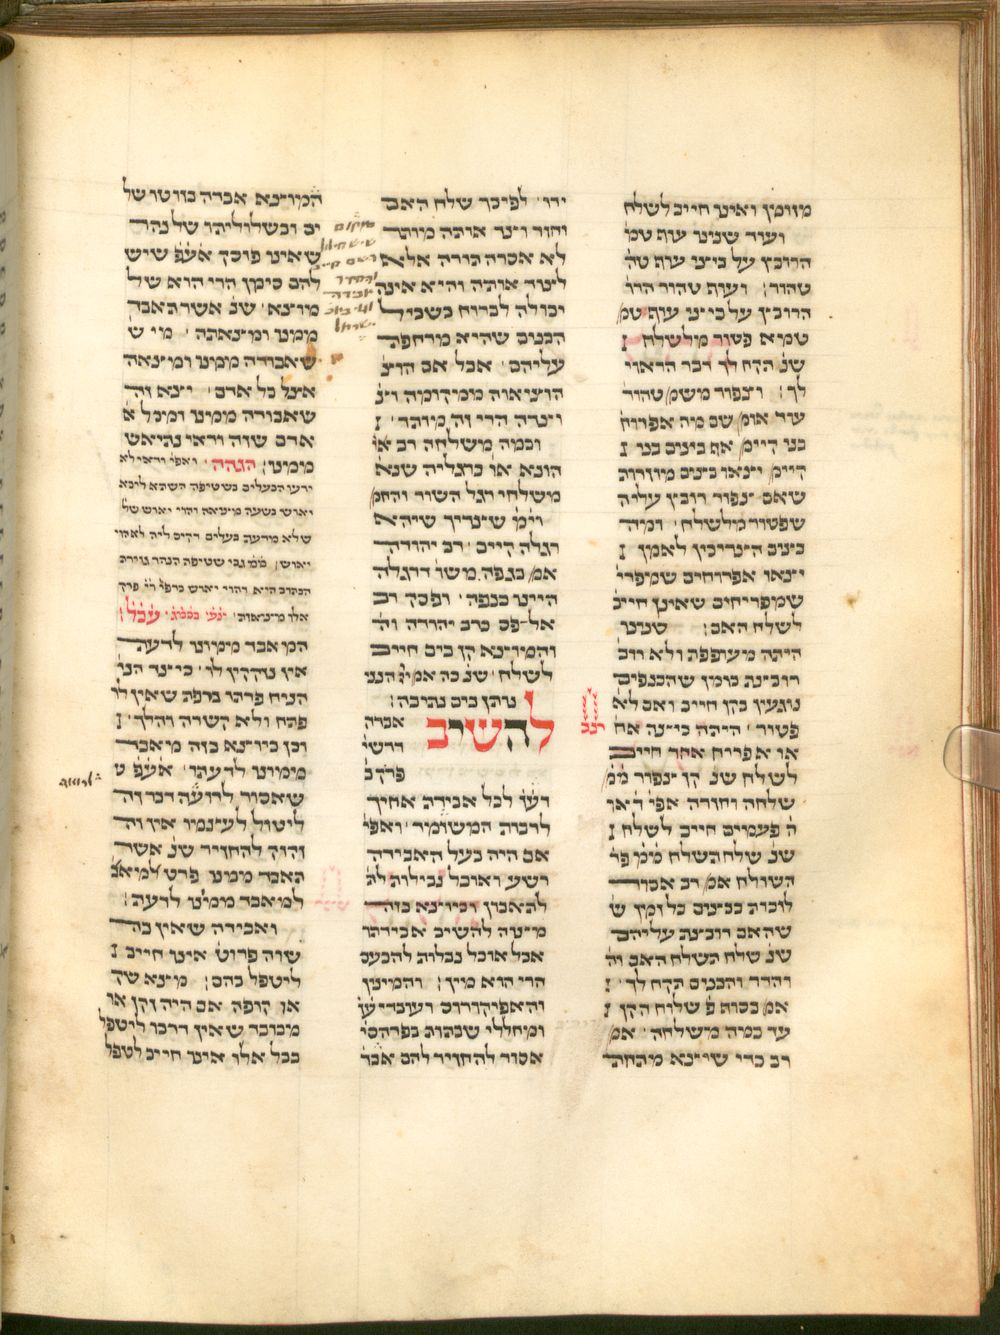 מזומן ואינו חייב לשלח
ועוד שנינו עוף טמ׳
הרובץ על ביצי עוף טה׳
טהור׃ ועוף טהור הרו׳
הרובץ על ביצי עוף טמ׳
טמיא פטור מלשלח
שנ׳ תקח לך דבר הראוי
לך׃ וצפור משמ׳ טהור
עוד אומ׳ שם מיה אפרוח׳
בני קיימ׳ אף ביצים בני
קיימ׳ יצאו ביצים מוזרות
שאם צפור רובץ עליה׳
שפטור מלשלח׳ ומיה
ביצים הצריכין לאמן
יצאו אפרוחים שמפרי׳
שמפריחים שאינן חייב
לשלח האם׃ שנינו
היתה מעופפת ולא רוב׳
רובצת בזמן שהכנפים
נוגעין בהן חייב ואם לא
פטור׳ היתה ביצה אח׳
או אפריח אחד חייב
לשלח שנ׳ קן צפור ממ׳
שלחה וחזרה אפי׳ ד׳ או
ה׳ פעמים חייב לשלח
שנ׳ שלח תשלח ממ׳ פר׳
השולח אמ׳ רב אסור
לזכות בביצים כל זמן ש׳
שהאם רובצת עליהם
שנ׳ שלח תשלח האם וה׳
והדר והבנים תקח לך׳
אמ׳ בסוף פ׳ שלוח הקן
עד כמה משלחה׳ אמ׳
רב כדי שיצא מתחת
ינב
ידו׳ לפיכך שלח האם
וחזר וצד אותה מותר
לא אסרה תורה אלא
לצוד אותה והיא אינה
יכולה לברוח בשביל
הבנים שהיא מרחפת
עליהם׳ אבל אם הוצ׳
הוציאוה ממקומה וצ׳
וצדה הרי זה מותר׳
ובמה משלחה רב א׳
הונא או׳ ברגליה שנא׳
משלחי רגל השור והחמ׳
וימ׳ שצריך שיהא
רגלה קיים׳ רב יהודה
אמ׳ בגפה משו׳ דרגלה
היינו כנפה׳ ופסק רב
אלפס כרב יהודה וה׳
והמוצא הקן בים חייב
לשלח׳ שנ׳ כה אמ׳ יי׳ הנני
נותן בים נתיבה׃
להשיב
אבדה
דרשי׳
פרק ב׳
דע׳ לכל אבידת אחיך
לרבות המשומד׳ ואפי׳
אם היה בעל האבידה
רשע ואוכל נבילות לת׳
לתאבון וכיוצא בזה
מצוה להשיב אבידתו
אבל אוכל נבלות להכעס
הרי הוא מין׃ והמינין
והאפיקורוס ועובד ע׳
ומחללי שבתות בפרהסי׳
אסור להחזיר להם אבד׳
המוצא אבדה בזוטו של
ים ובשלוליתו של נהר
שאינו פוסק אע״פ שיש
להם סימן הרי הוא של
מוצא׳ שנ׳ אשר תאבד
ממנו ומצאתה׳ מי ש׳
שאבודה ממנו ומצאה
אצל כל אדם׳ יצא זה
שאבודה ממנו ומכל א׳
אדם שזה ודאי נתיאש
ממנו׃ הגהה׳ ואפי׳ ודאי לא
ידעו הבעלים בשטיפה השתא ליכא
יאוש בשעה מציאה והוי יאוש של׳
שלא מדעת בעלים דקים ליה לאחוי
יאוש׃ ממ׳ גבי שטיפה הנהר גזירת
הכתוב הוא והוי יאוש כדפי׳ רי׳ פרק
אלו מציאות׃
המאבד ממונו לדעת
אין נזקקין לו׳ כיצד הני׳
הניח פרתו ברפת שאין לו
פתח ולא קשרה והלך׳
וכן כיוצא בזה מאבד
ממונו לדעתו׳ אע״פ ש׳
שאסור לרועה דבר זה
ליטול לעצמו אין זה
זקוק להחזיר שנ׳ אשר
תאבד ממנו פרט למאב׳
למאבד ממונו לדעת׃
ואבידה שאין בה
שוה פרוט׳ אינו חייב
ליטפל בהם׃ מצא שק
או קופה אם היה זקן או
מכובד שאין דרכו ליטפל
בכל אלו אינו חייב לטפל